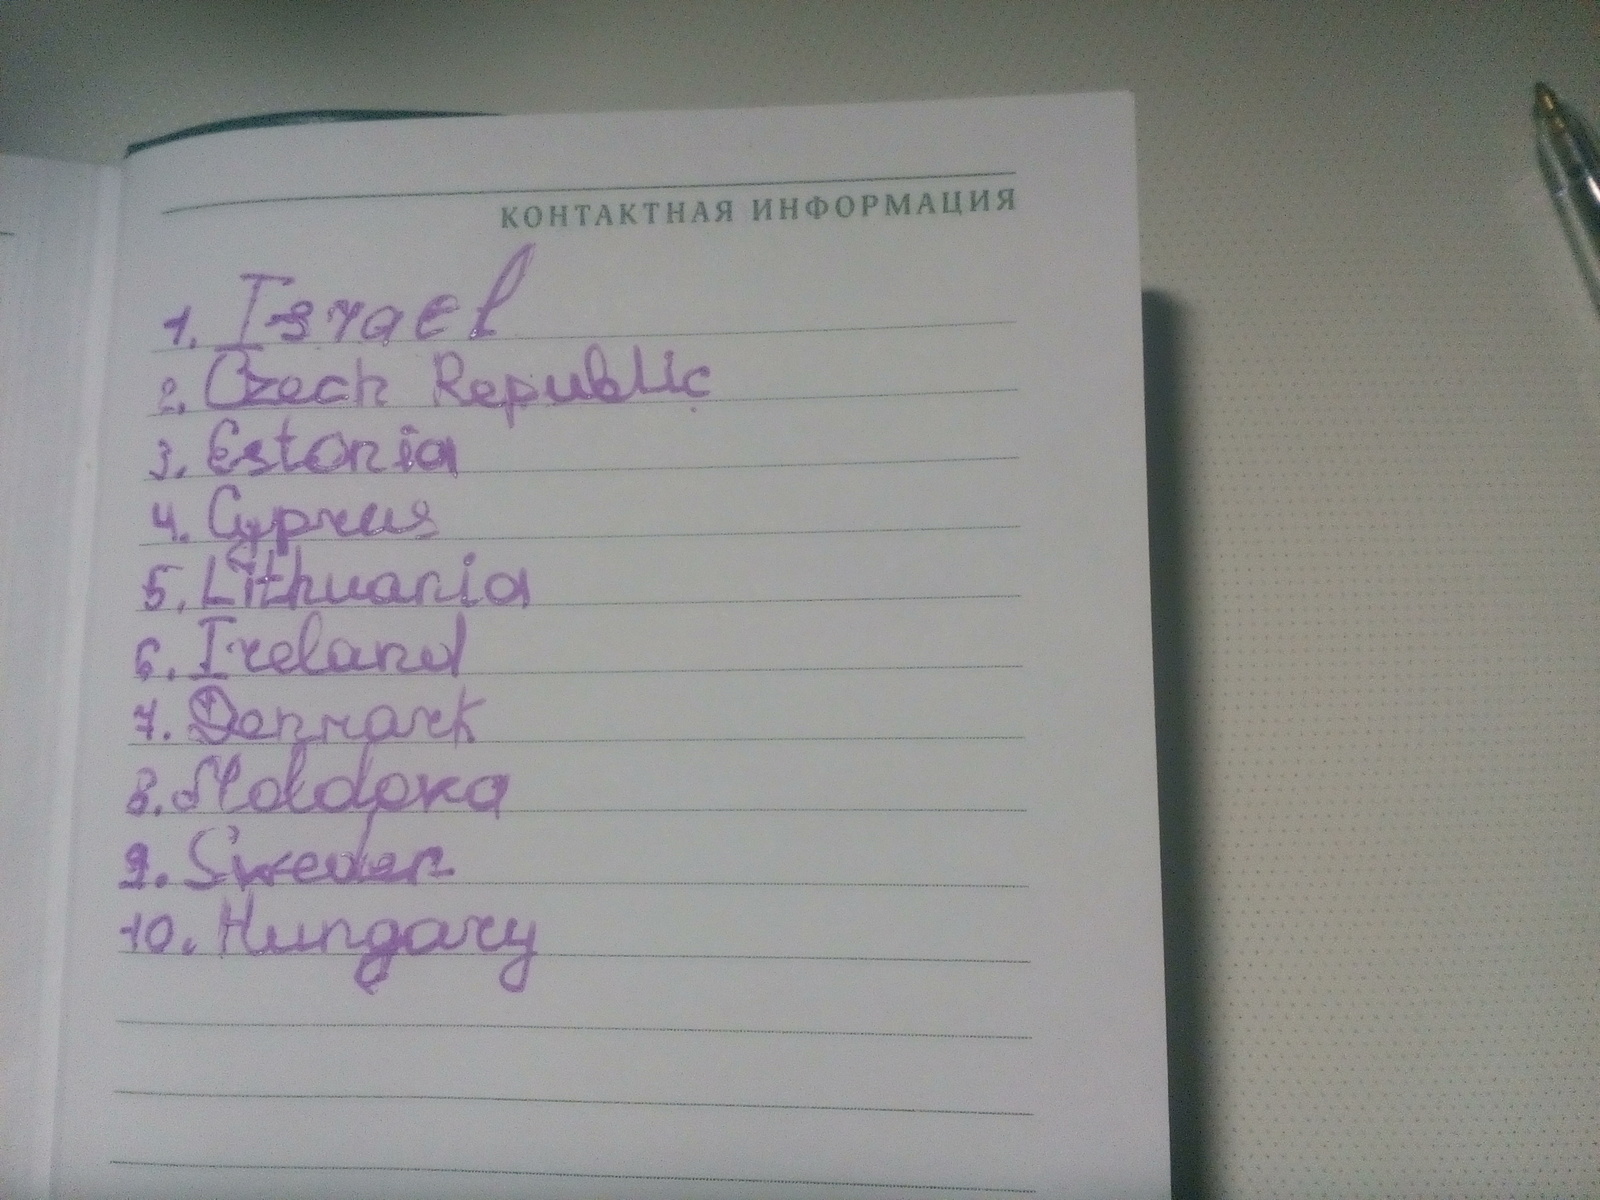 КОНТАКТНАЯ ИНФОРМАЦИЯ
1. Israel
2. Czech Republic
3. Estonia
4. Cyprus
5. Lithuania
6. Ireland
7. Denmark
8. Moldova
9. Sweden
10. Hungary